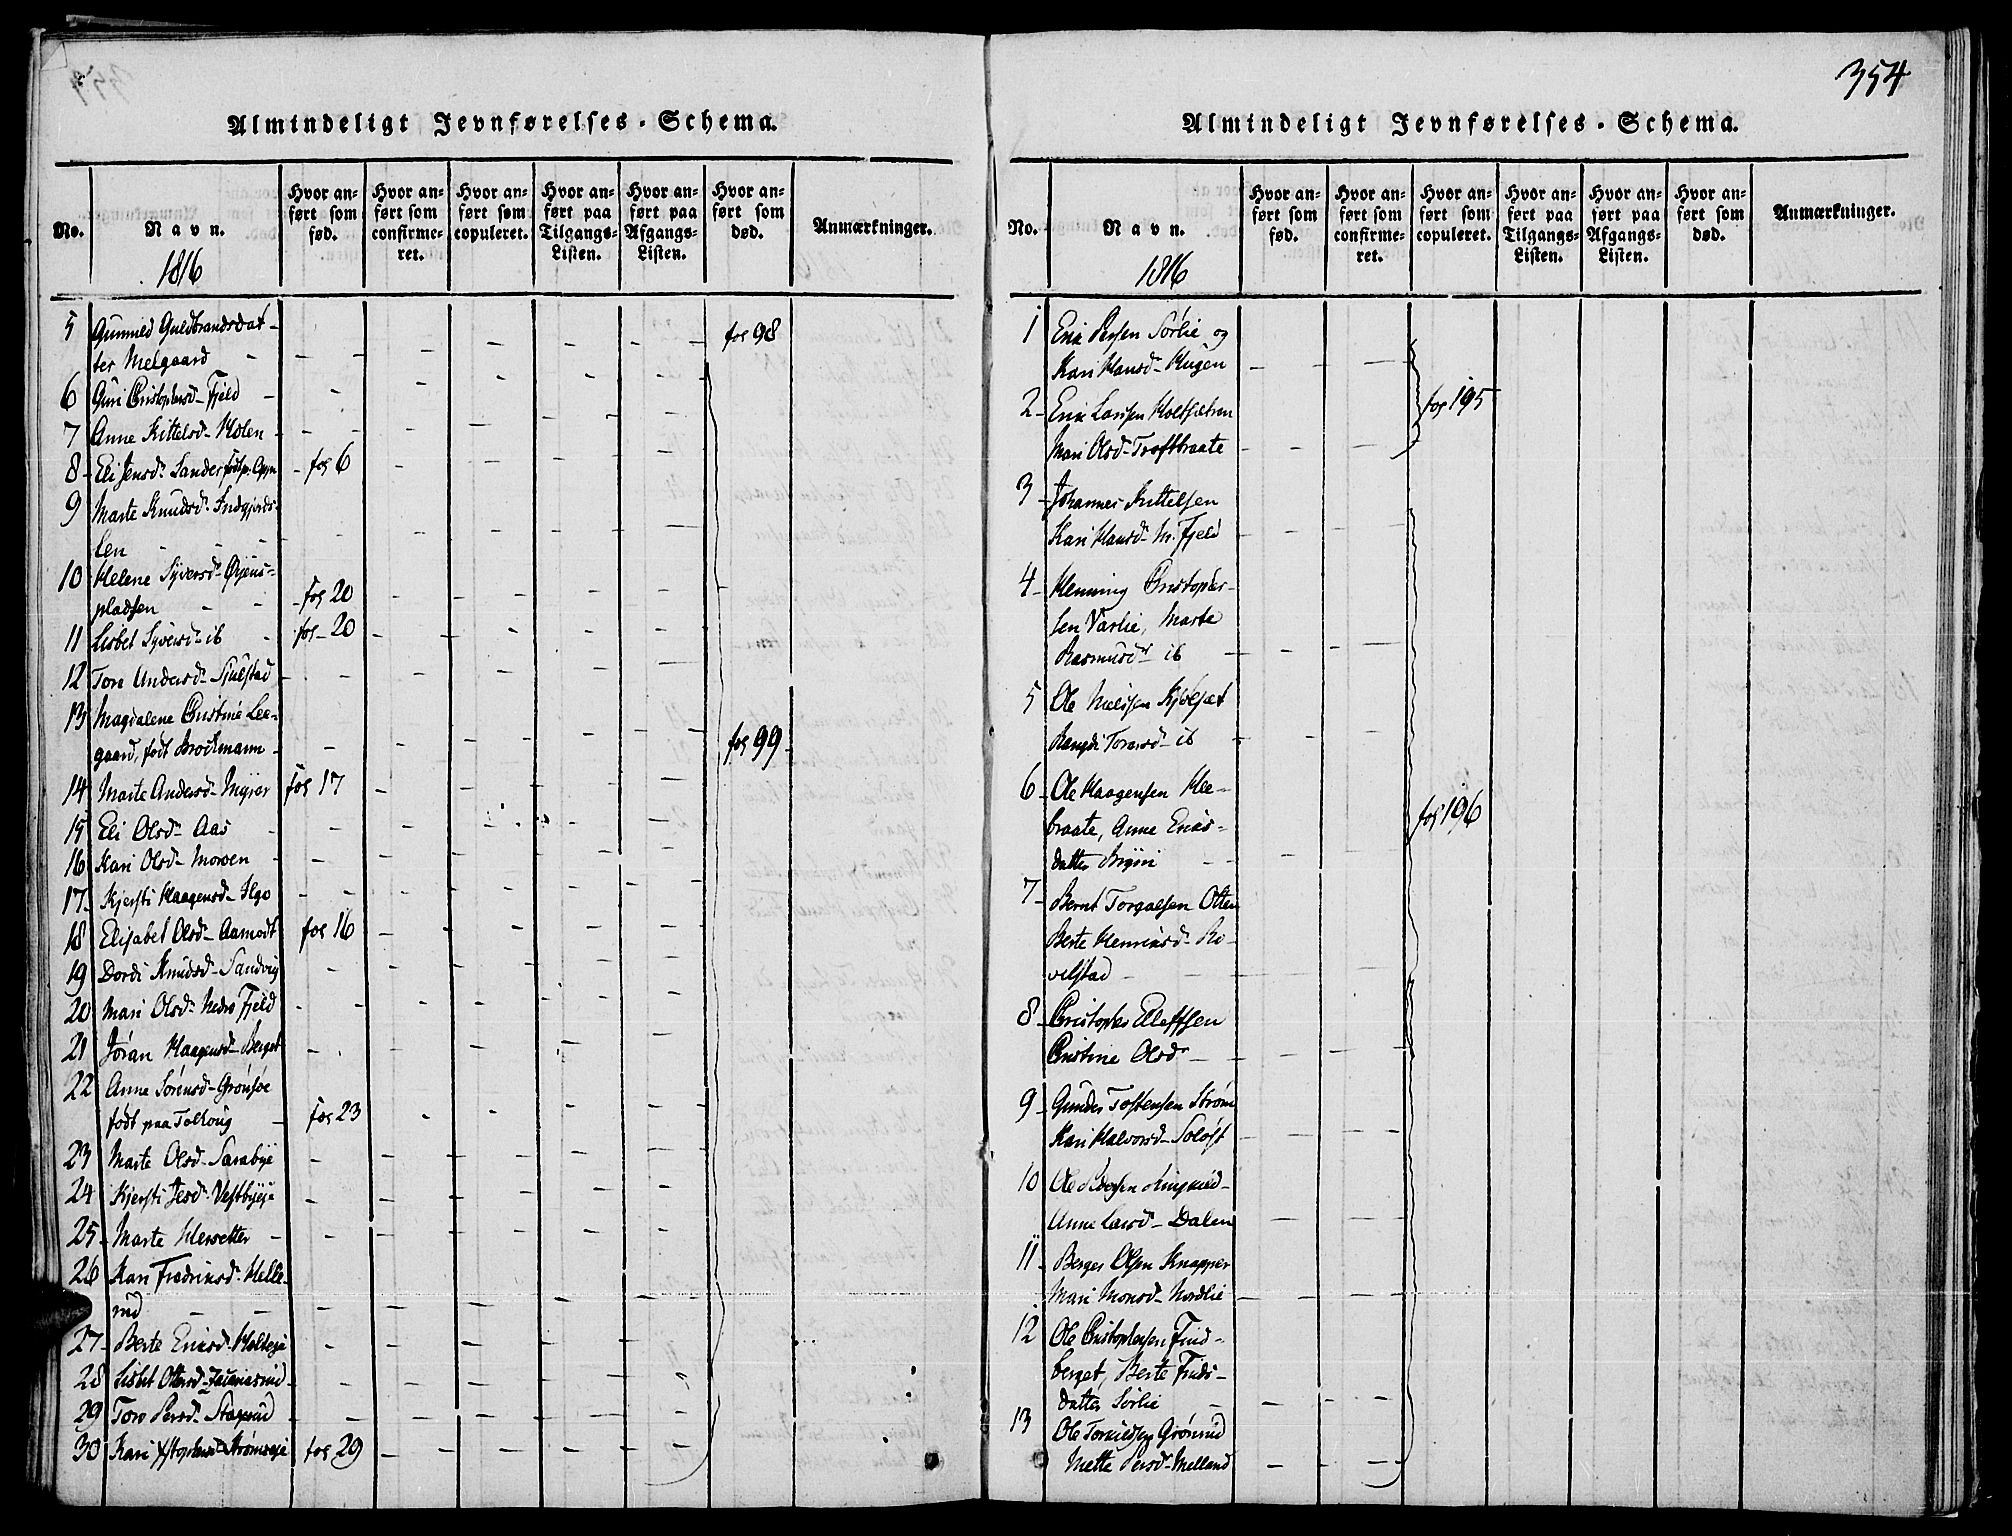 354
Almindeligt Jevnførelses-Schema.
No.
Navn.
1816
Hvor anført som fød.
Hvor anført som confirmeret.
Hvor anført som copuleret.
Hvor anført paa Tilgangs-Listen.
Hvor anført paa Afgangs-Listen.
Hvor anført som død.
Anmærkninger.
5 Gunnild Guldbrandsdat-
ter Melgaard - fol 98
6 Guri Christophersd- Fjeld
7 Anne Kittelsd- Molen
8 Eli Jensd- Sander - fol 6
9 Marte Knudsd- Indgjerds-
len
10 Helene Syversd- Ørjens-
pladsen - fol 20
11 Lisbet Syversd- ib fol- 20
12 Tore Andersd- Sjulstad
13 Magdalene Christine Lee-
gaard, født Brockmann - fol 99
14 Marte Andersd- Myrer fol 17
15 Eli Olsd- Aas
16 Kari Olsd- Morven
17 Kjersti Haagensd- Ilgo
18 Elisabet Olsd- Aamodt fol 16
19 Dordi Knudsd- Sandvig
20 Mari Olsd- Nedre Fjeld
21 Jøran Haagensd- Berget
22 Anne Sörensd- Grønsøe
født paa Tollovig fol 23
23 Marte Olsd- Sarabye
24 Kjersti Jesd- Vestbyeje
25 Marte Hersetter
26 Kari Fredriksd- Helle-
rud
27 Berte Eriksd- Holteje
28 Lisbet Ottersd-
29 Tore Persd- Skogrud
30 Kari Xstophersd- Strømseje fol 29
Almindeligt Jevnførelses-Schema.
No.
Navn.
1816
Hvor anført som fød.
Hvor anført som confirmeret.
Hvor anført som copuleret.
Hvor anført paa Tilgangs-Listen.
Hvor anført paa Afgangs-Listen.
Hvor anført som død.
Anmærkninger.
1 Erik Persen Sörlie og
Kari Hansd- Haugen
2 Erik Larsen Holtsætren fol 195
Mari Olsd- Troftbraate
3 Johannes Kittelsen
Kari Hansd- M. Fjeld
4 Henning Christopher-
sen Varlie, Marte
Rasmusd- ib
5 Ole Nielsen
Rangdi Toresd- ib
6 Ole Haagensen Klee-
braate, Anne Eriks- fol 196
datter Bryni
7 Bernt Torgalsen Otten
Berte Henriksd- Ro-
velstad
8 Christopher Ellefsen
Christine Olsd-
9 Gunder Tostensen Strøm
Kari Halvorsd- Soløst
10 Ole Pedersen Ringnæs-
Anne Larsd- Dalen
11 Berger Olsen Knapper
Mari Monsd- Nordlie
12 Ole Christophersen Find-
berget, Berte Finds-
datter Sørlie
13 Ole Torkildsen Grönrud
Mette Persd- Melland